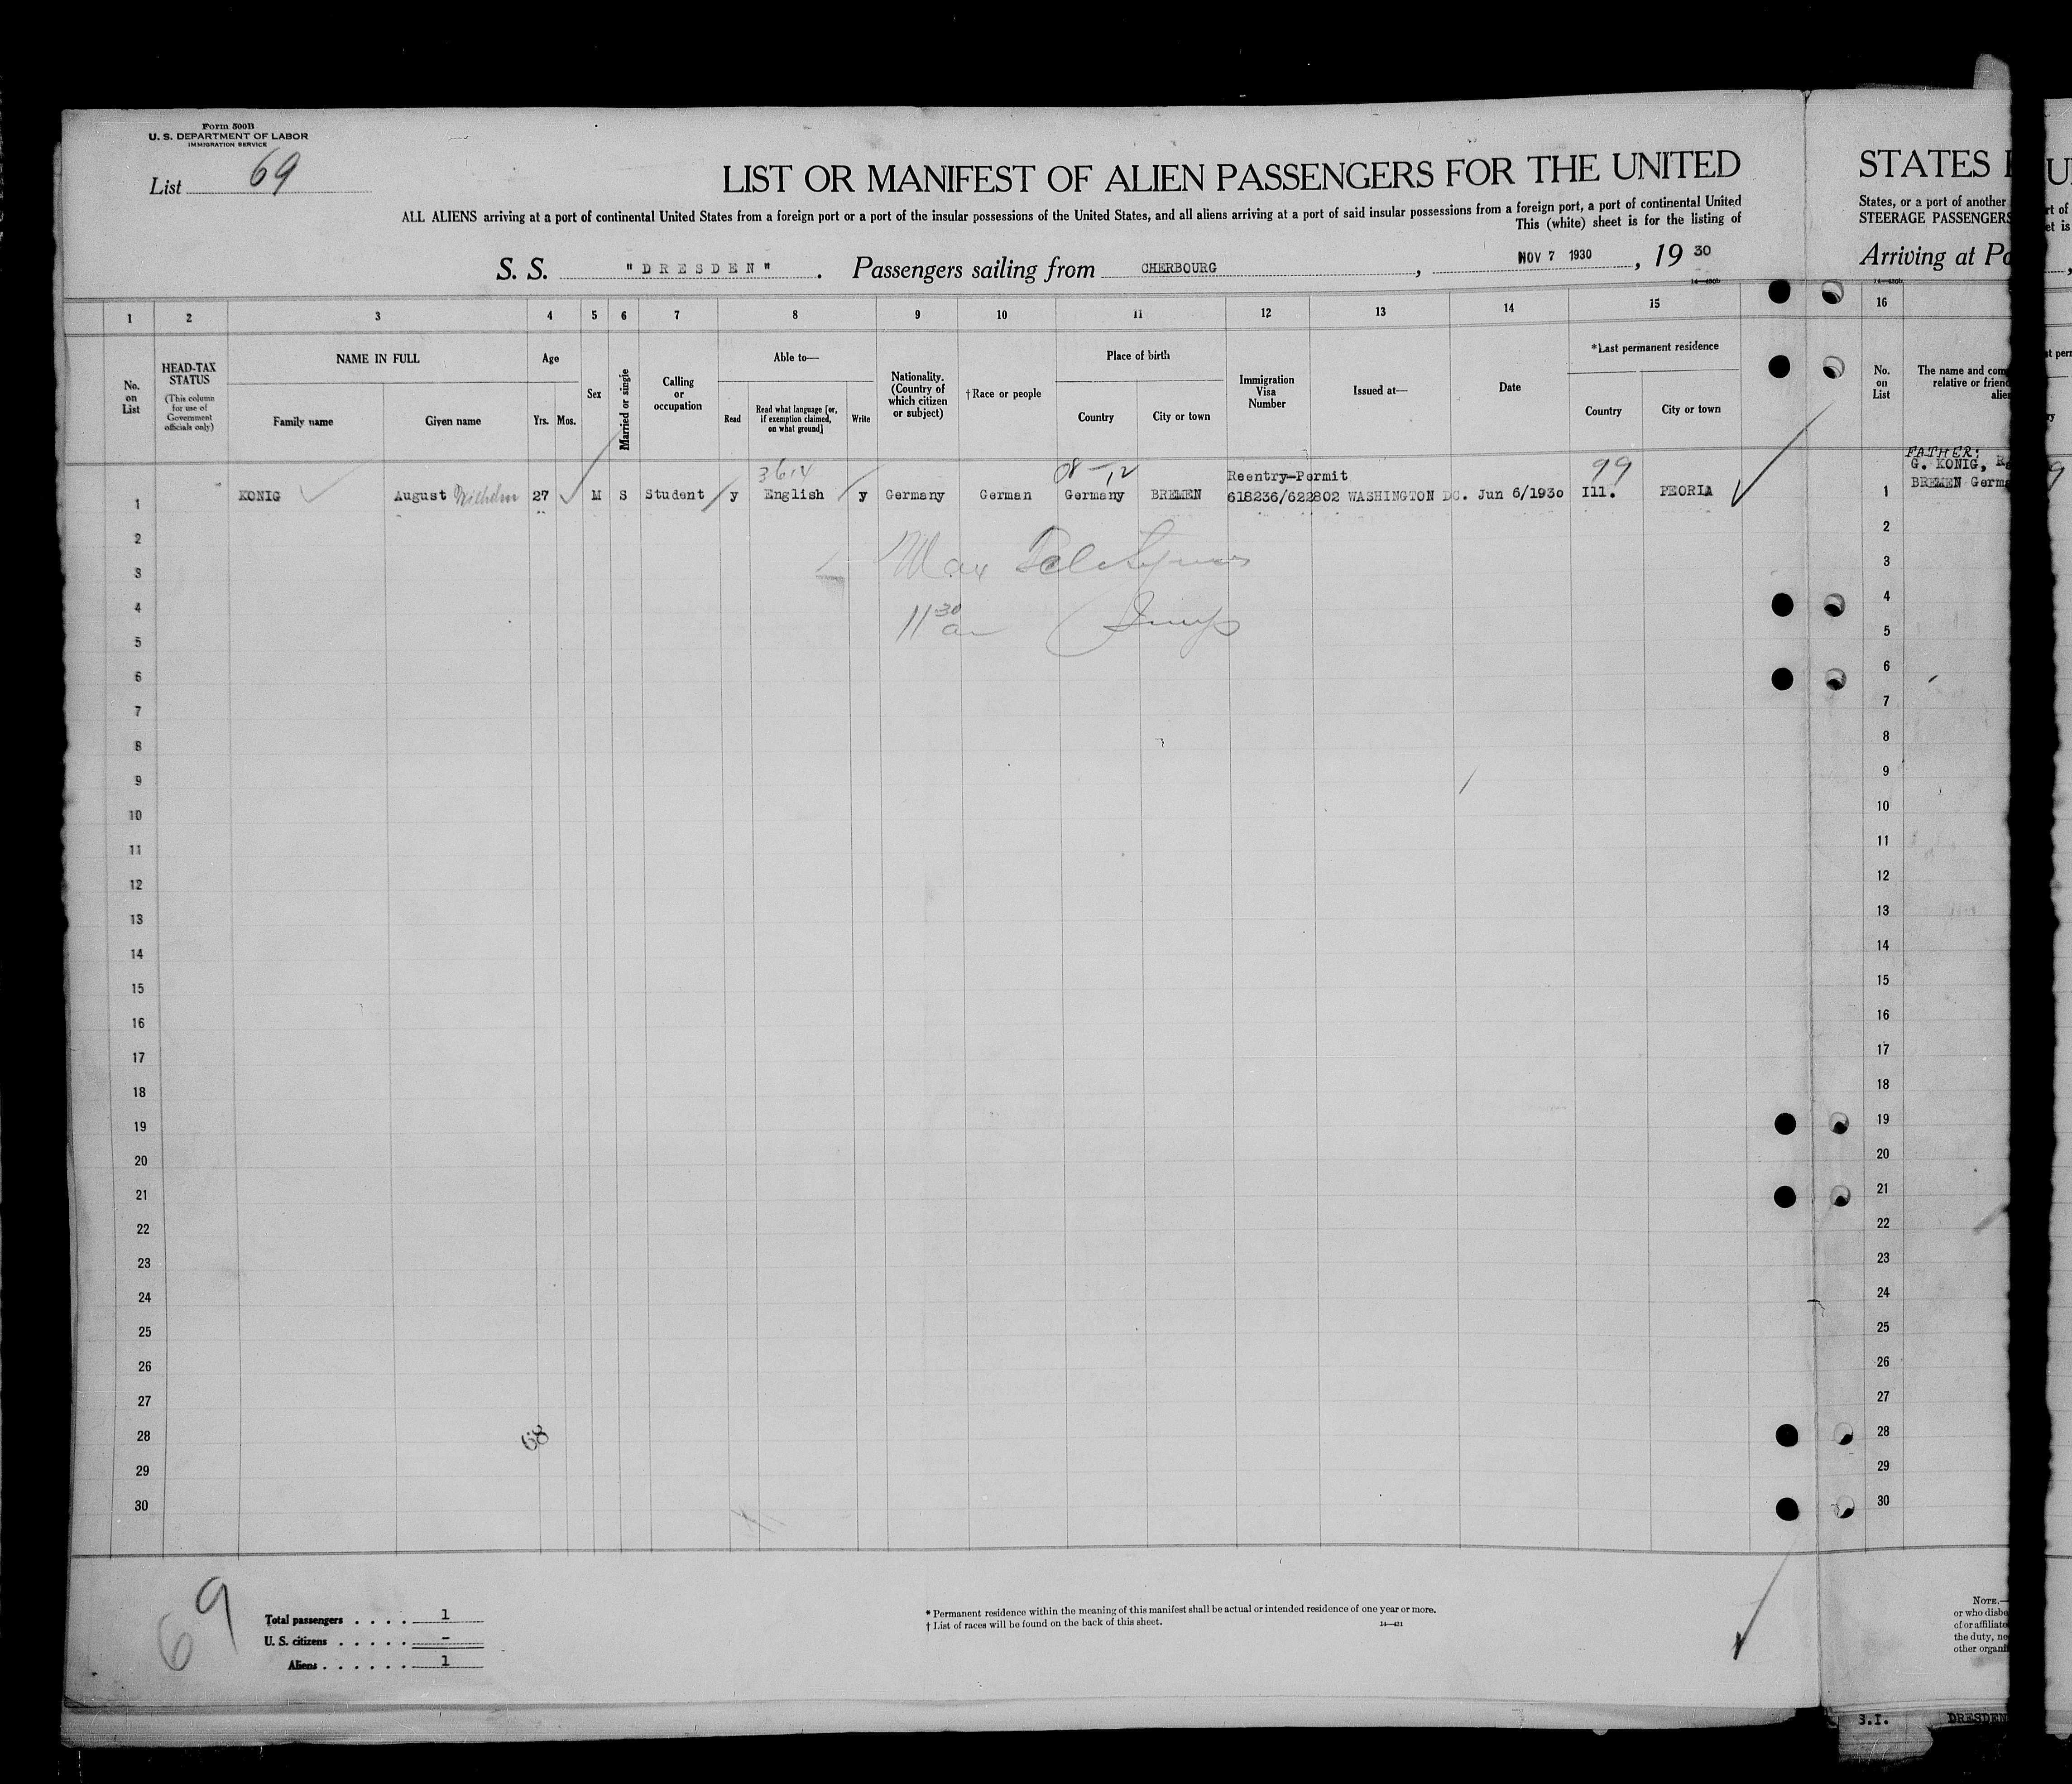 Form 500B
U. S. DEPARTMENT OF LABOR
IMMIGRATION SERVICE
List 69
LIST OR MANIFEST OF ALIEN PASSENGERS FOR THE UNITED
ALL ALIENS arriving at a port of continental United States from a foreign port or a port of the insular possessions of the United States, and all aliens arriving at a port of said insular possessions from a foreign port, a port of continental United
This (white) sheet is for the listing of
S. S. "DRESDEN". Passengers sailing from CHERBOURG, NOV 7 1930, 19 30
14—430b
1 2 3 4 5 6 7 8 9 10 11 12 13 14 15
No. on List
HEAD-TAX STATUS
(This column for use of Government officials only)
NAME IN FULL
Family name
Given name
Age
Yrs. Mos.
Sex
Married or single
Calling or occupation
Able to—
Read
Read what language [or, if exemption claimed, on what ground]
Write
Nationality. (Country of which citizen or subject)
†Race or people
Place of birth
Country
City or town
Immigration Visa Number
Issued at—
Date
*Last permanent residence
Country
City or town
3614 08-12 99
Reentry-Permit
1 KONIG August Wilhelm 27 M S Student y English y Germany German Germany BREMEN 618236/622802 WASHINGTON DC. Jun 6/1930 Ill. PEORIA
2
3 Max
4
5 11 30 a
6
7
8
9
10
11
12
13
14
15
16
17
18
19
20
21
22
23
24
25
26
27
28 68
29
30
69
Total passengers . . . . 1
U. S. citizens . . . . . –
Aliens . . . . . . 1
* Permanent residence within the meaning of this manifest shall be actual or intended residence of one year or more.
† List of races will be found on the back of this sheet.
14—431
STATES
States, or a port of another
STEERAGE PASSENGERS
Arriving at Po
16
No. on List
The name and com
relative or frien
alien
FATHER:
G. KONIG,
1 BREMEN Germ
2
3
4
5
6
7
8
9
10
11
12
13
14
15
16
17
18
19
20
21
22
23
24
25
26
27
28
29
30
NOTE.—
or who disbe
of or affiliate
the duty, ne
other organi
S.I. DRESDEN